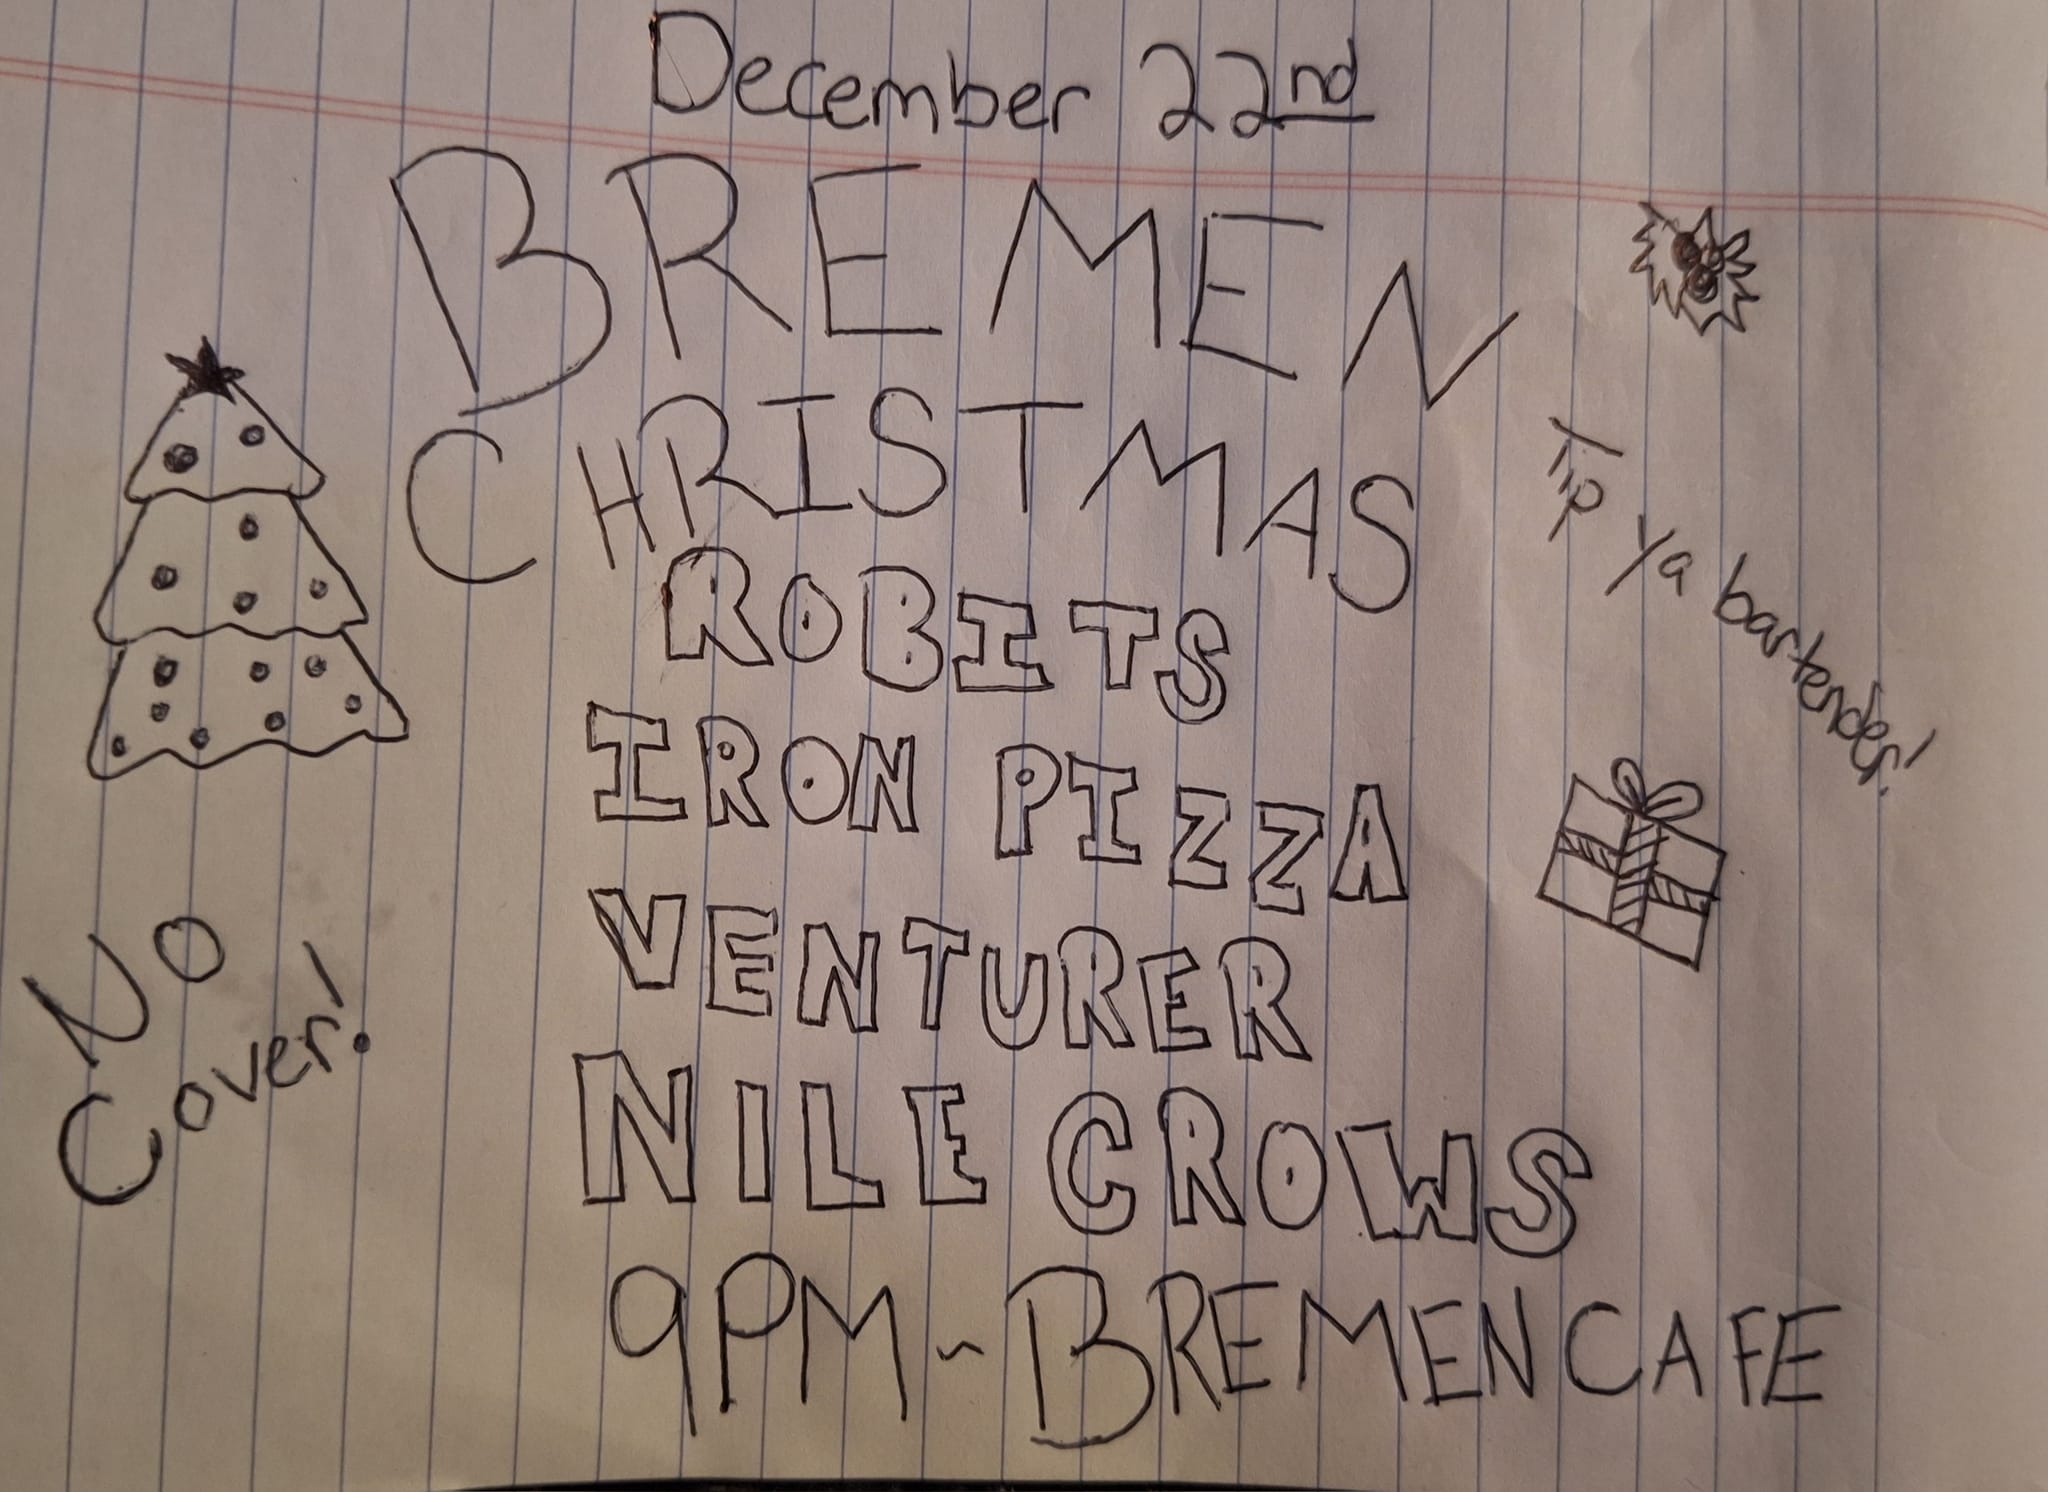 December 22nd
BREMEN
CHRISTMAS
ROBITS
IRON PIZZA
VENTURER
NILE CROWS
9PM ~ BREMEN CAFE
No
Cover!
Tip ya bartender!